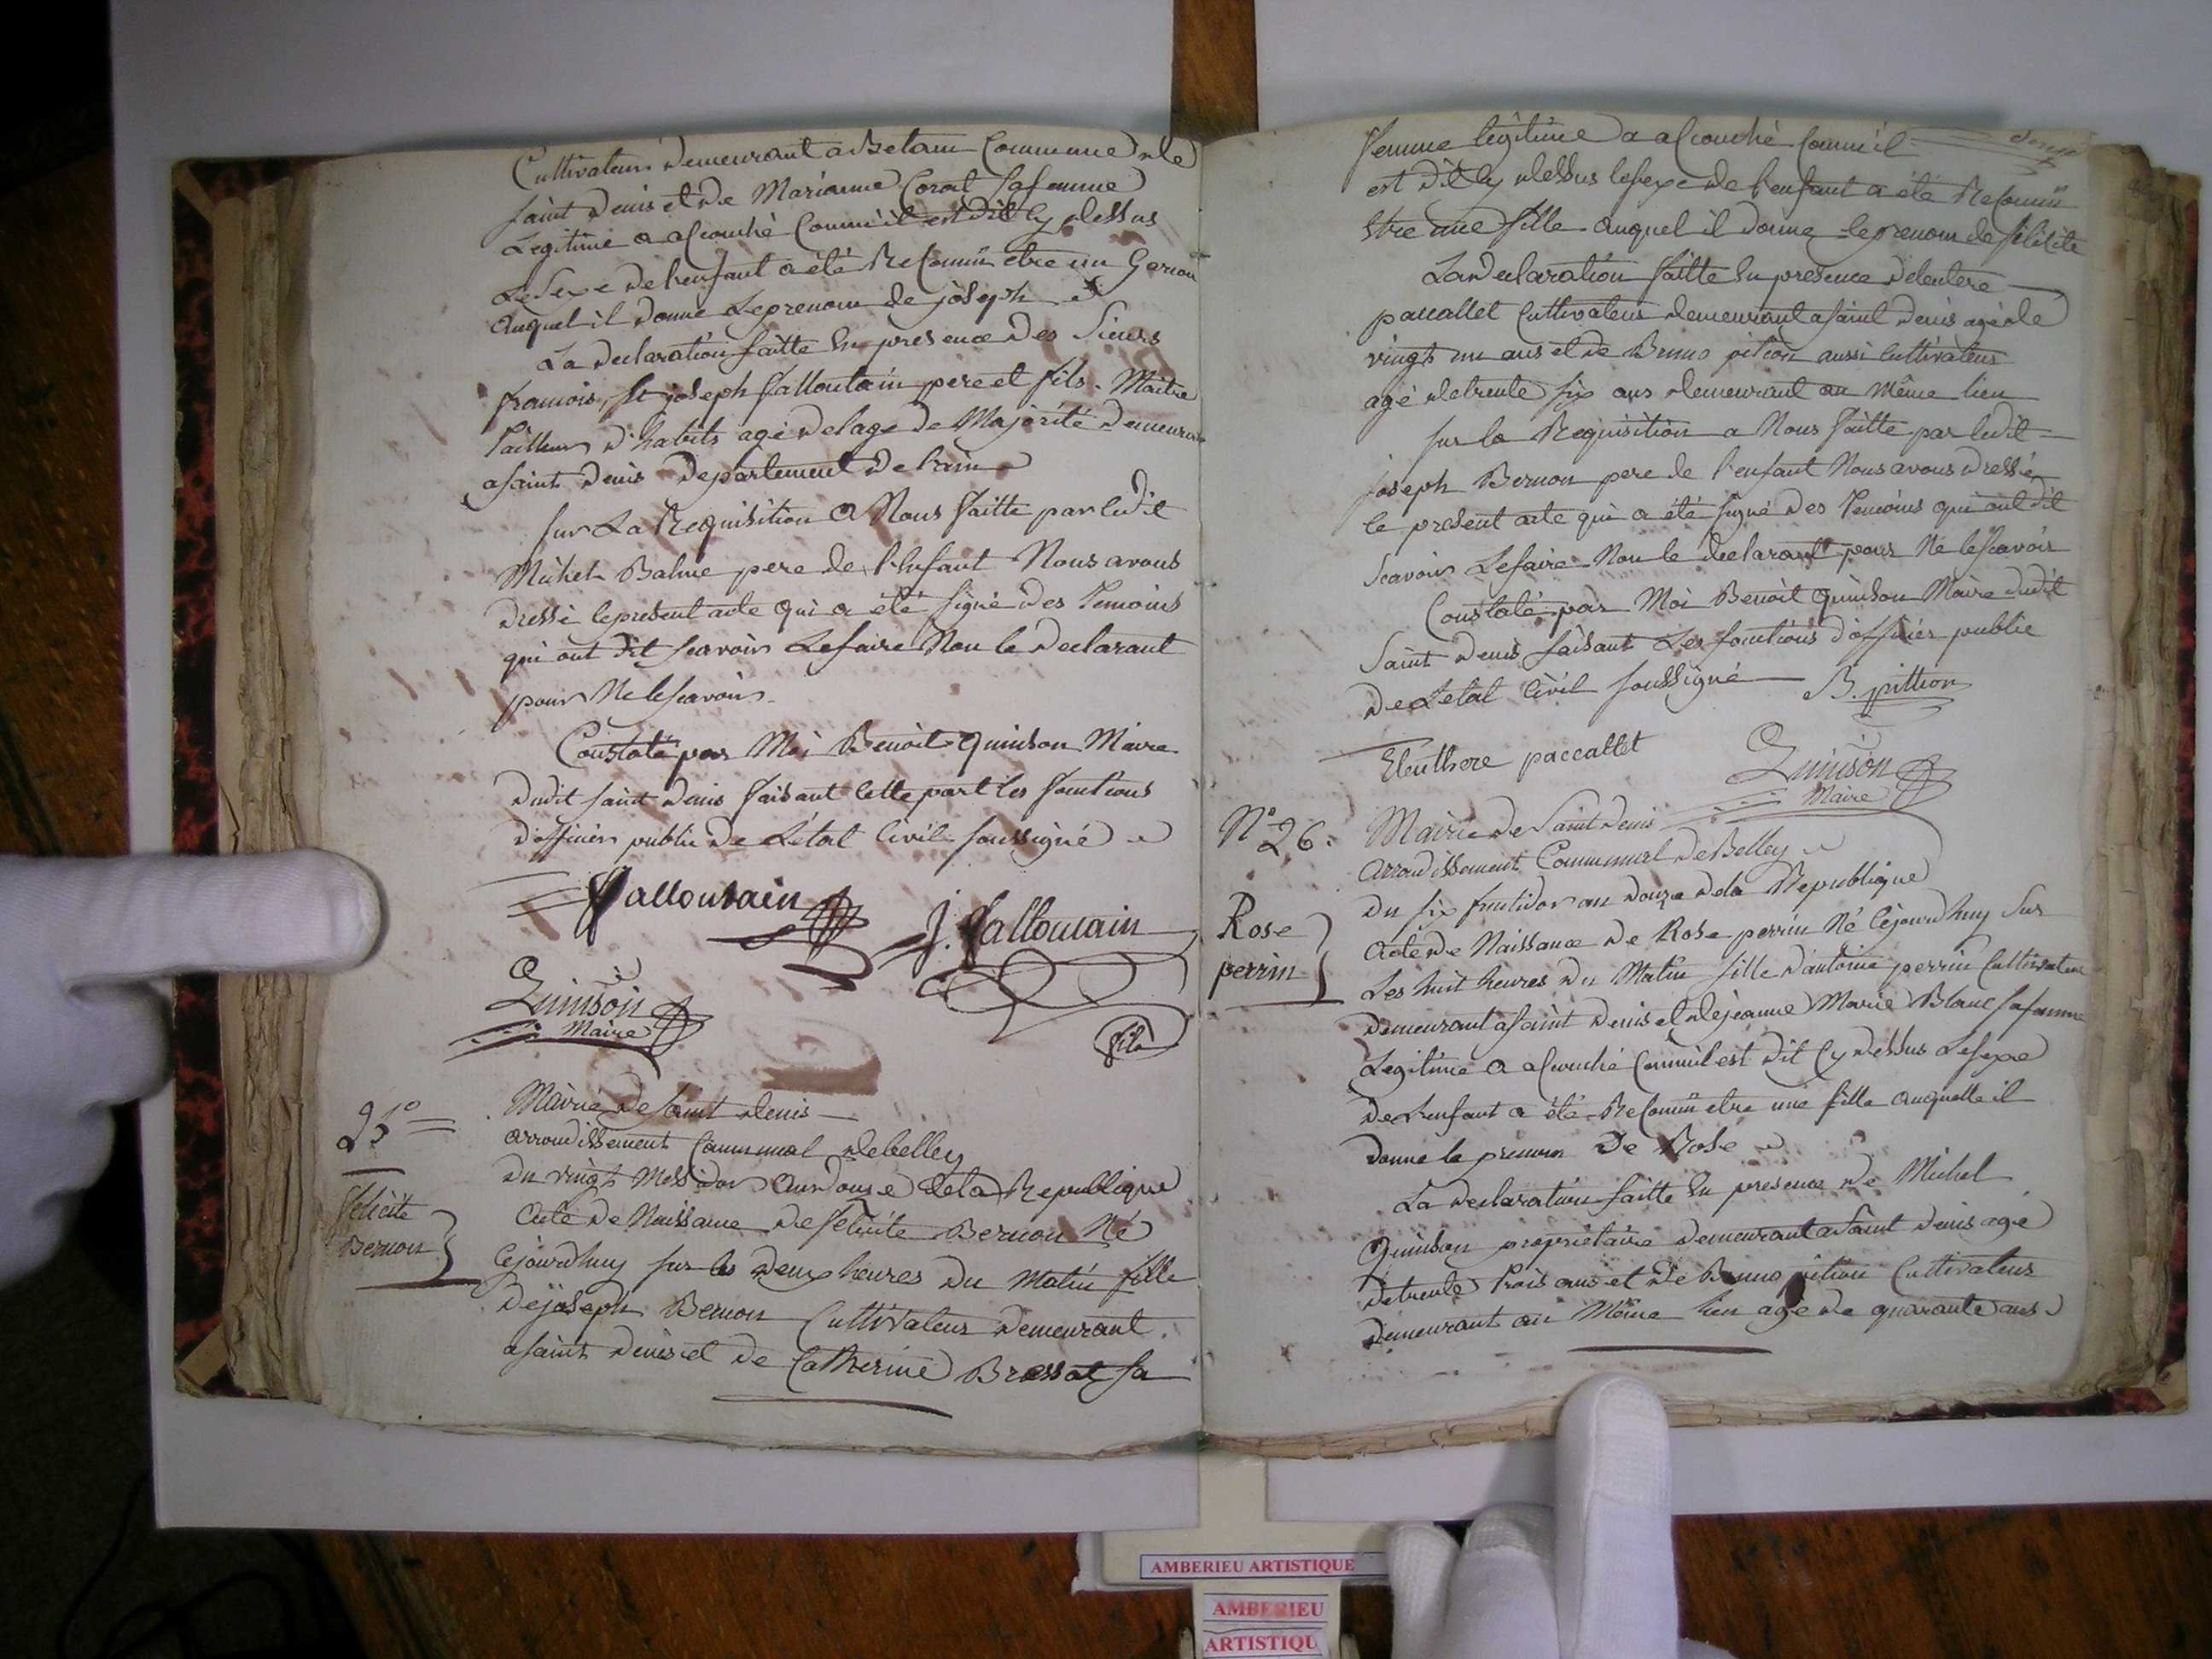 Cultivateur demeurant a Betam Commune de
saint denis et de Marianne Corat sa femme
Legitime a acouché Comme il est dit cy dessus
Le sexe de l'enfant a été Reconnu etre un Garcon
auquel il donne Le prenom de joseph
La declaration faitte En présence des Sieurs
francois, et joseph falloutain pere et fils. Maitre
Tailleur d'habits agé de lage de Majorité demeurant
a saint Denis Departement de l'ain
sur La Requisition a Nous faitte par ledit
Michel Balme pere de l'Enfant Nous avons
dressé le present acte qui a été signé des Temoins
qui ont dit scavoir Le faire Non le declarant
pour Ne le scavoir.
Constaté par Moi Benoit Quinson Maire
dudit saint denis faisant cette part les fonctions
d'officier public de L'état Civil soussigné
falloutain
J. falloutain
fils
Quinson
Maire
25°
Mairie de saint denis
arrondissement Communal de belley
du vingt Messidor an douze de la Republique
Acte de Naissance de felicité Bernon Né
cejourdhuy sur les deux heures du Matin fille
de joseph Bernon Cultivateur demeurant
a saint denis et de Catherine Bressat sa
felicité
Bernon
femme legitime a acouché comme il
est dit cy dessus le sexe de l'enfant a été Reconnu
Etre une fille auquel il donne le prenom de félicité
La declaration faitte En presence deleutere
paccallet Cultivateur demeurant a saint denis agé de
vingt un ans et de Bruno pition aussi cultivateur
agé de trente six ans demeurant au même lieu
sur la Requisition a Nous faitte par ledit
joseph Bernon pere de l'enfant Nous avons dressé
le present acte qui a été signé des Temoins qui ont dit
scavoir Le faire Non le declarant pour Ne le scavoir
Constaté par Moi Benoit Quinson Maire dudit
Saint denis faisant Les fonctions d'officier public
de L'état Civil soussigné
B. pittion
Eleuthere paccallet
Quinson
Maire
N° 26.
Mairie de Saint denis
arrondissement Communal de Belley
du six fructidor an douze de la Republique
Acte de Naissance de Rose perrin Né cejourdhuy sur
Les huit heures du Matin fille d'antoine perrin Cultivateur
demeurant a saint denis et de jeanne Marie Blanc sa femme
Legitime a acouché comme il est dit cy dessus Le sexe
de L'enfant a été Reconnu etre une fille auquelle il
donne le prenom de Rose
La declaration faitte En presence de Michel
Quinson propriétaire demeurant a Saint denis agé
de trente trois ans et de Bruno pition Cultivateur
demeurant au Même lieu agé de quarante ans
Rose
perrin
AMBERIEU ARTISTIQUE
AMBERIEU
ARTISTIQU